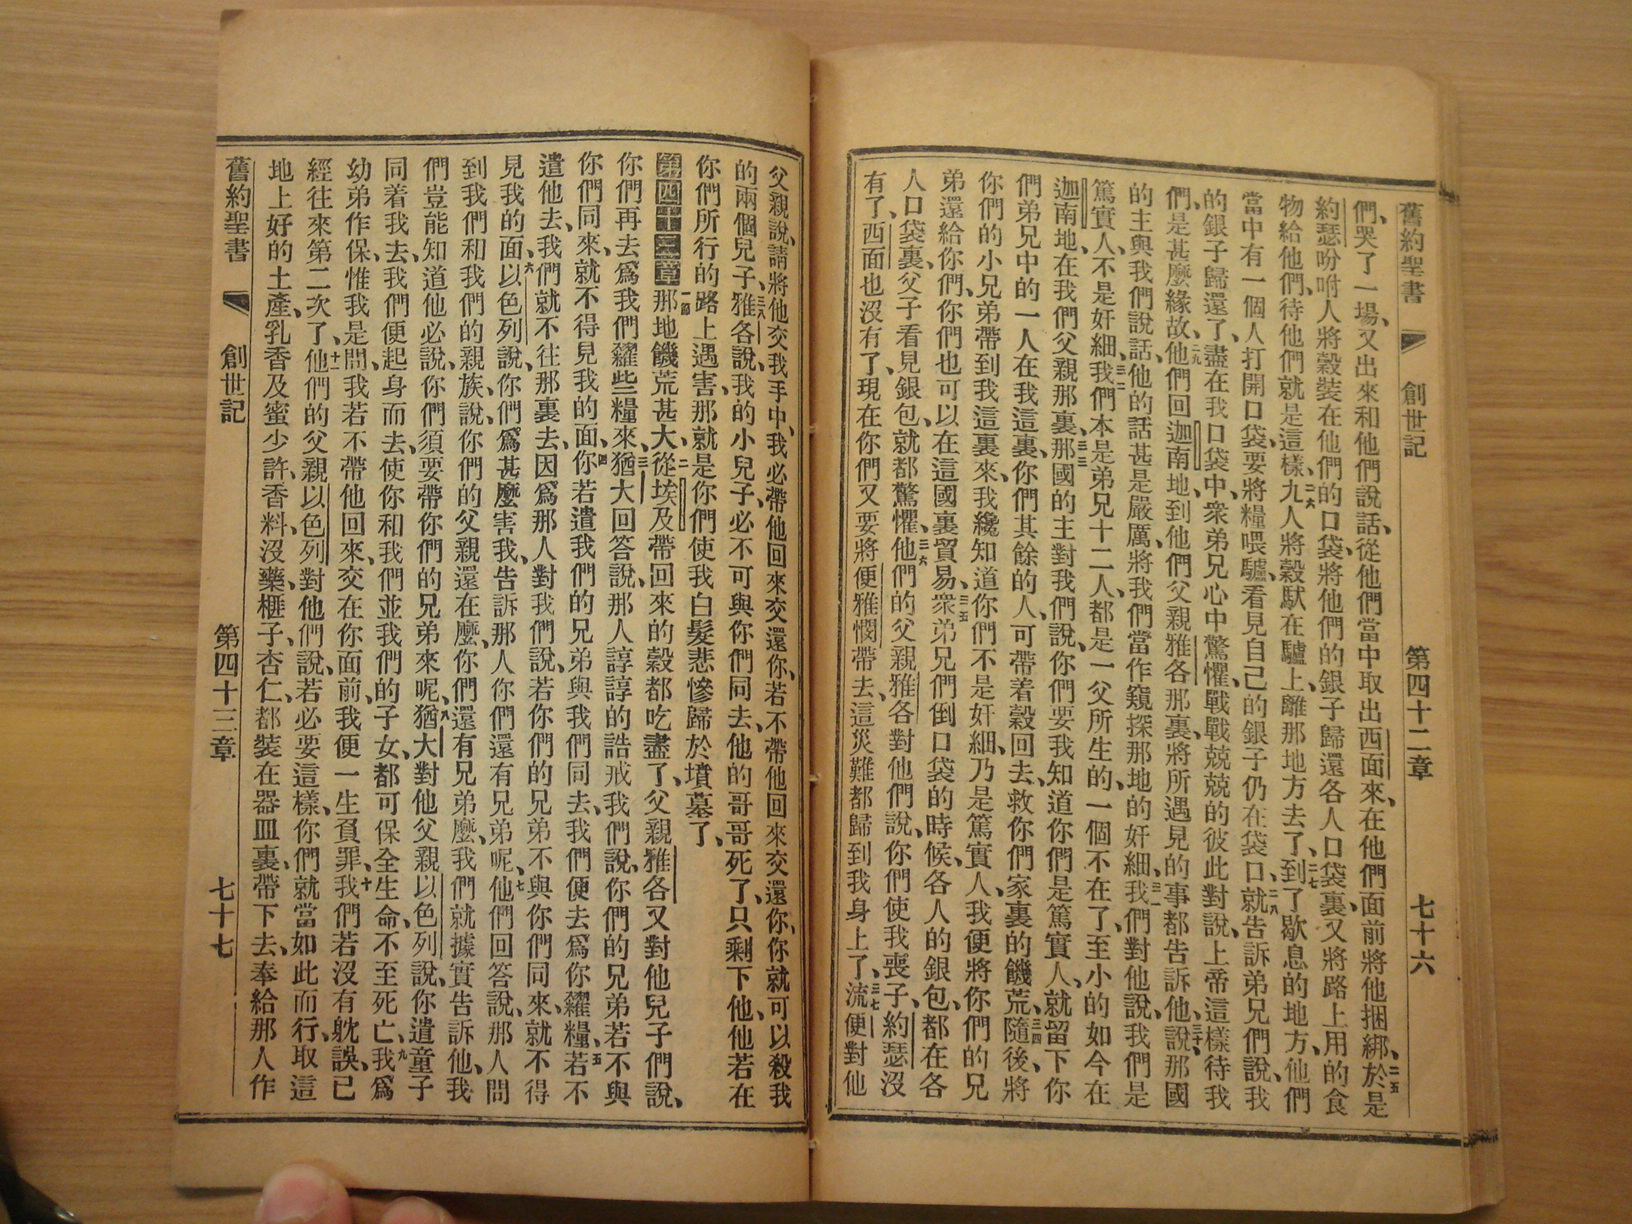 舊約聖書 創世記 第四十二章 七十六
們、哭了一場、又出來和他們說話、從他們當中取出西面來、在他們面前將他捆綁、二五於是
約瑟吩咐人將穀裝在他們的口袋、將他們的銀子歸還各人口袋裏、又將路上用的食
物給他們、待他們就是這樣、二六九人將穀馱在驢上、離那地方去了、二七到了歇息的地方、他們
當中有一個人打開口袋、要將糧喂驢、看見自己的銀子仍在袋口、二八就告訴弟兄們說、我
的銀子歸還了、盡在我口袋中、衆弟兄心中驚懼、戰戰兢兢的彼此對說、上帝這樣待我
們、是甚麼緣故、二九他們回迦南地、到他們父親雅各那裏、將所遇見的事都告訴他、三十說、那國
的主與我們說話、他的話甚是嚴厲、將我們當作窺探那地的奸細、三一我們對他說、我們是
篤實人、不是奸細、三二我們本是弟兄十二人、都是一父所生的、一個不在了、至小的如今在
迦南地、在我們父親那裏、三三那國的主對我們說、你們要我知道你們是篤實人、就留下你
們弟兄中的一人在我這裏、你們其餘的人、可帶着穀回去、救你們家裏的饑荒、三四隨後將
你們的小兄弟帶到我這裏來、我纔知道你們不是奸細、乃是篤實人、我便將你們的兄
弟還給你們、你們也可以在這國裏貿易、三五衆弟兄們倒口袋的時候、各人的銀包、都在各
人口袋裏、父子看見銀包、就都驚懼、三六他們的父親雅各對他們說、你們使我喪子、約瑟沒
有了、西面也沒有了、現在你們又要將便雅憫帶去、這災難都歸到我身上了、三七流便對他
父親說、請將他交我手中、我必帶他回來交還你、若不帶他回來交還你、你就可以殺我
的兩個兒子、三八雅各說、我的小兒子、必不可與你們同去、他的哥哥死了、只剩下他、他若在
你們所行的路上遇害、那就是你們使我白髮悲慘歸於墳墓了、
第四十三章 一節那地饑荒甚大、二從埃及帶回來的穀都吃盡了、父親雅各又對他兒子們說、
你們再去爲我們糴些糧來、三猶大回答說、那人諄諄的誥戒我們說、你們的兄弟若不與
你們同來、就不得見我的面、四你若遣我們的兄弟與我們同去、我們便去爲你糴糧、五若不
遣他去、我們就不往那裏去、因爲那人對我們說、若你們的兄弟不與你們同來、就不得
見我的面、六以色列說、你們爲甚麼害我、告訴那人你們還有兄弟呢、七他們回答說、那人問
到我們和我們的親族、說、你們的父親還在麼、你們還有兄弟麼、我們就據實告訴他、我
們豈能知道他必說、你們須要帶你們的兄弟來呢、八猶大對他父親以色列說、你遣童子
同着我去、我們便起身而去、使你和我們並我們的子女、都可保全生命、不至死亡、九我爲
幼弟作保、惟我是問、我若不帶他回來、交在你面前、我便一生負罪、十我們若沒有躭誤、已
經往來第二次了、十一他們的父親以色列對他們說、若必要這樣、你們就當如此而行、取這
地上好的土產、乳香及蜜少許、香料、沒藥、榧子、杏仁、都裝在器皿裏、帶下去、奉給那人作
舊約聖書 創世記 第四十三章 七十七